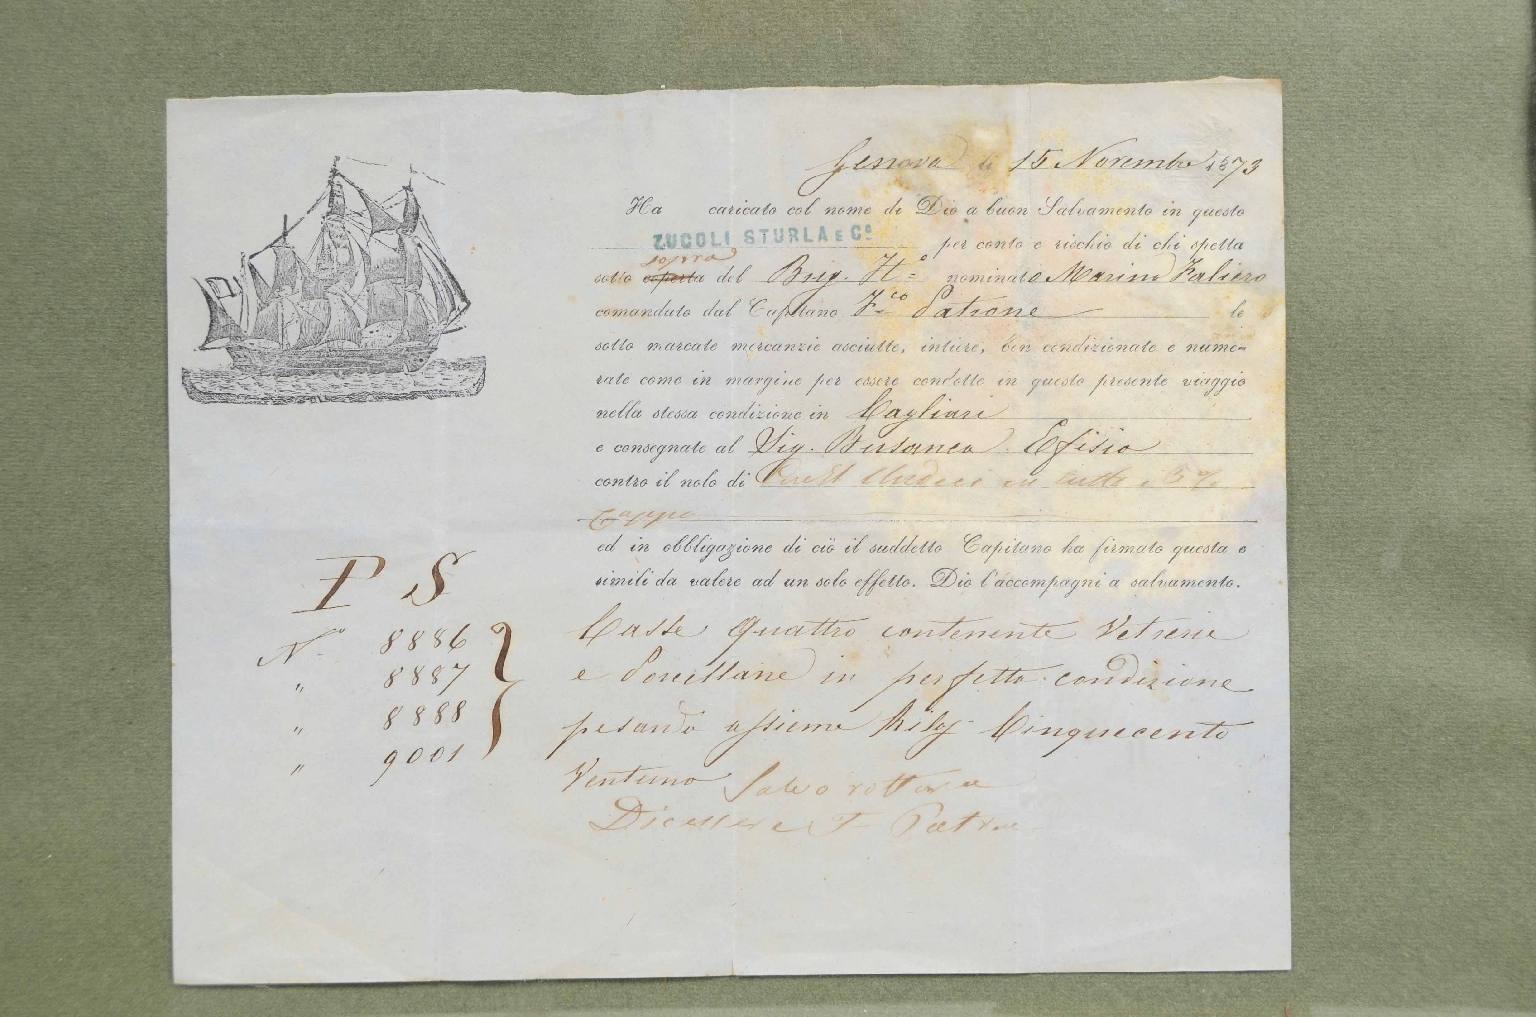 Genova li 15 Novembre 1873
Ha caricato col nome di Dio a buon Salvamento in questo
ZUCOLI STURLA E Cº per conto e rischio di chi spetta
sopra
sotto coperta del Brig. Itº nominato Marino Faliero
comandato dal Capitano Fco Patrone le
sotto marcate mercanzie asciutte, intiere, ben condizionate e nume=
rate come in margine per essere condotte in questo presente viaggio
nella stessa condizione in Cagliari
e consegnate al Sig. Efisio
contro il nolo di Undeci in tutto e 5 %
Cappa
ed in obbligazione di ciò il suddetto Capitano ha firmato questa e
simili da valere ad un solo effetto. Dio l'accompagni a salvamento.
P S
Nº 8886
" 8887
" 8888
" 9001
Casse Quattro contenente Vetrerie
e Porcellane in perfetta condizione
pesando assieme Kilog Cinquecento
Ventuno Salvo rottura
Dicessere F Patrone